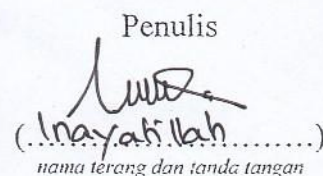 Penulis
(Inayatillah)
nama terang dan tanda tangan